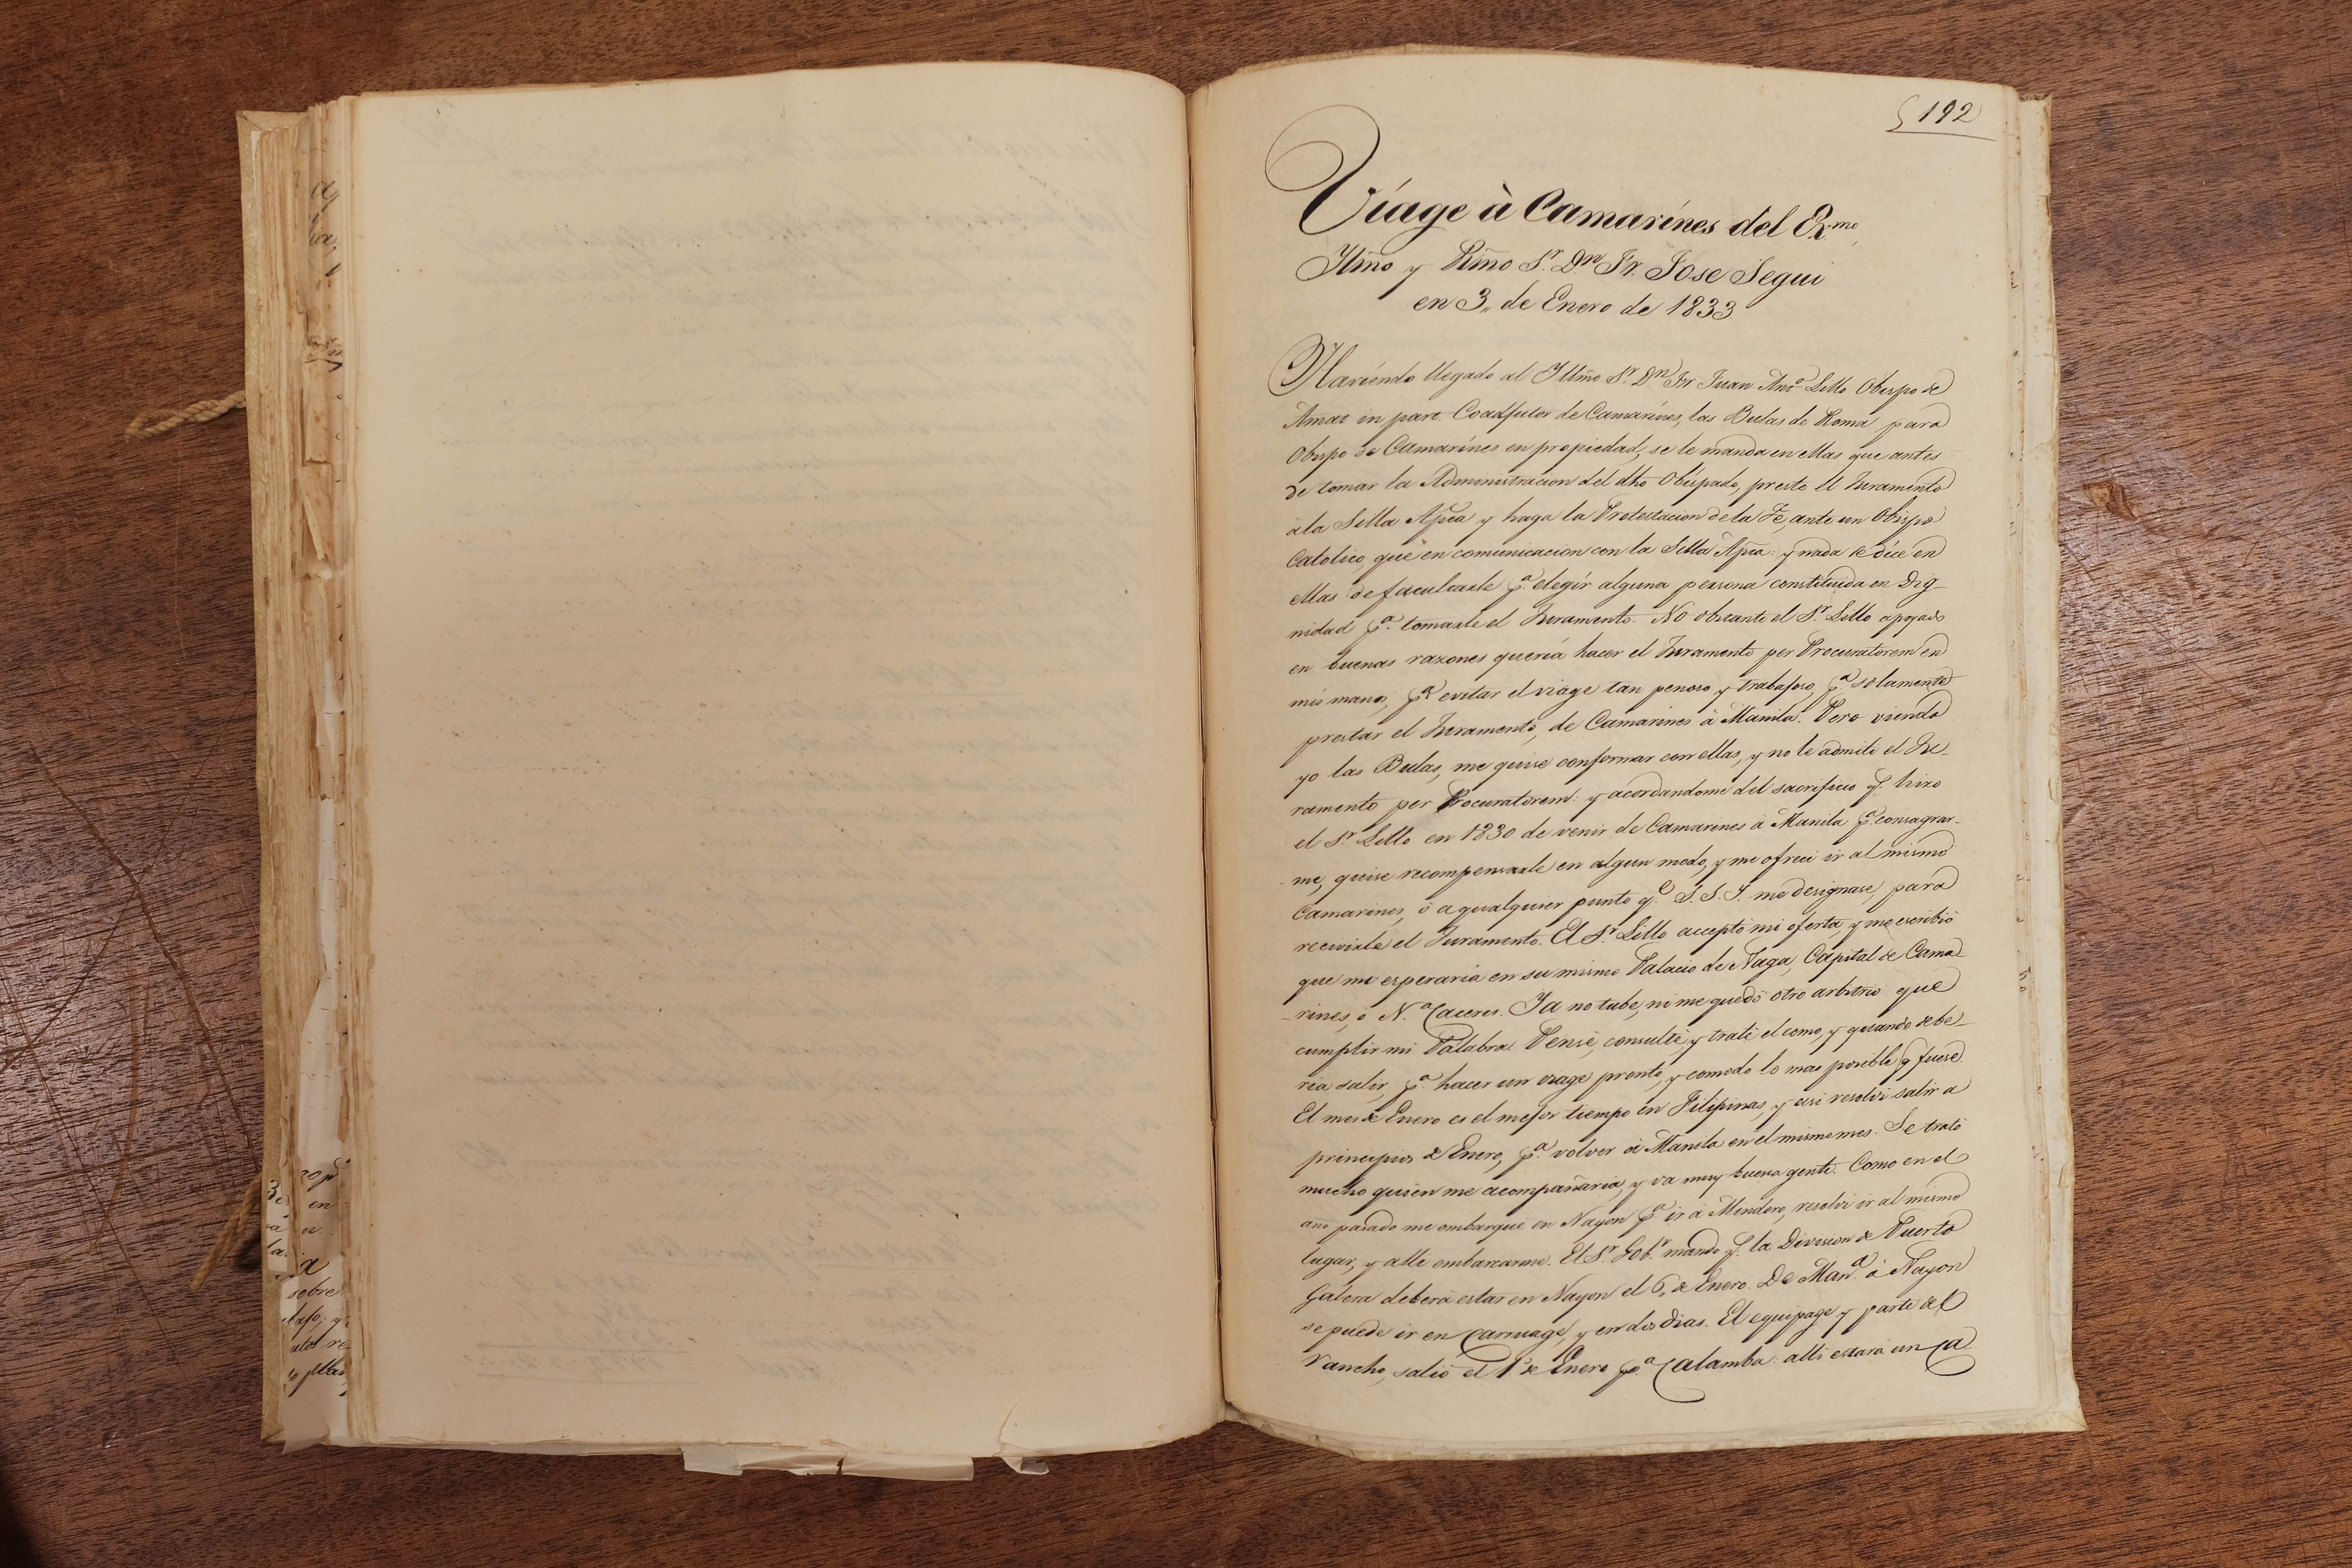 192
Viage à Camarínes del Exmo,
Ylmo y Rmo Sr. Dn Fr. Jose Segui
en 3,, de Enero de 1833
Haviendo llegado al Yllmo Sr. Dn Fr Juan Anto Lillo Obispo de
Amat in part. Coadjutor de Camarínes, las Bulas de Roma para
Obispo de Camarínes en propiedad, se le manda en ellas que antes
de tomar la Administracion del dho Obispado, preste el Juramento
à la Silla Apca y haga la Protestacion de la Fe, ante un Obispo
Catolico, que en comunicacion con la Silla Apca: y nada se dice en
ellas de facultarle pa. elegír alguna persona constituida en Dig-
nidad pa. tomarle el Juramento. No obstante el Sr. Lillo apoyado
en buenas razones queria hacer el Juramento per Procuratorem en
mis manos, pa evitar el viage tan penoso y trabajoso, pa solamente
prestar el Juramento, de Camarines à Manila. Pero viendo
yo las Bulas, me quise conformar con ellas, y no le admití el Ju-
ramento per Procuratorem: y acordandome del sacrificio q. hizo
el Sr. Lillo en 1830 de venir de Camarines à Manila pa. consagrar-
me, quise recompensarle en algun modo, y me ofrecí ir al mismo
Camarines, ò a qualquier punto qe. S. S. I. me designase, para
recivirle el Juramento. El Sr. Lillo acceptò mi oferta, y me escribiò
que me esperaria en su mismo Palacio de Naga, Capital de Cama-
rines, ò N.a Caceres. Ya no tube, ni me quedò otro arbitrio que
cumplir mi Palabra. Pensè, consultè y tratè el como, y quando debe-
ria salir, pa. hacer un viage pronto, y comodo lo mas posible q fuese.
El mes de Enero es el mejor tiempo en Filipinas, y asi resolvi salir a
principios de Enero, pa. volver à Manila en el mismo mes. Se tratò
mucho quien me acompañaria, y va muy buena gente. Como en el
año pasado me embarquè en Nayon pa ir à Mindoro, resolví ir al mismo
lugar, y alli embarcarme. El Sr. Gobr. mandò q. la Division de Puerto
Galera deberà estar en Nayon el 6,, de Enero. De Mana. à Nayon
se puede ir en Carruage, y en dos dias. El equipage y parte del
Rancho, saliò el 1o de Enero pa. Calamba: alli estarà un Ca